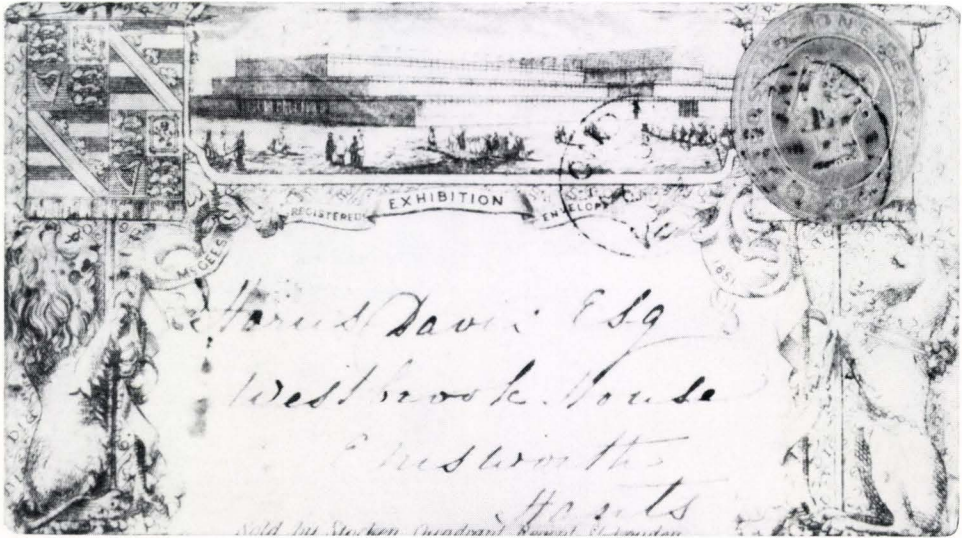 ONE PENNY
REGISTERED EXHIBITION ENVELOPE
1851
Davis Esq
Westbrook House
Emsworth
Hants
Sold by Stocken Quadrant Regent St London